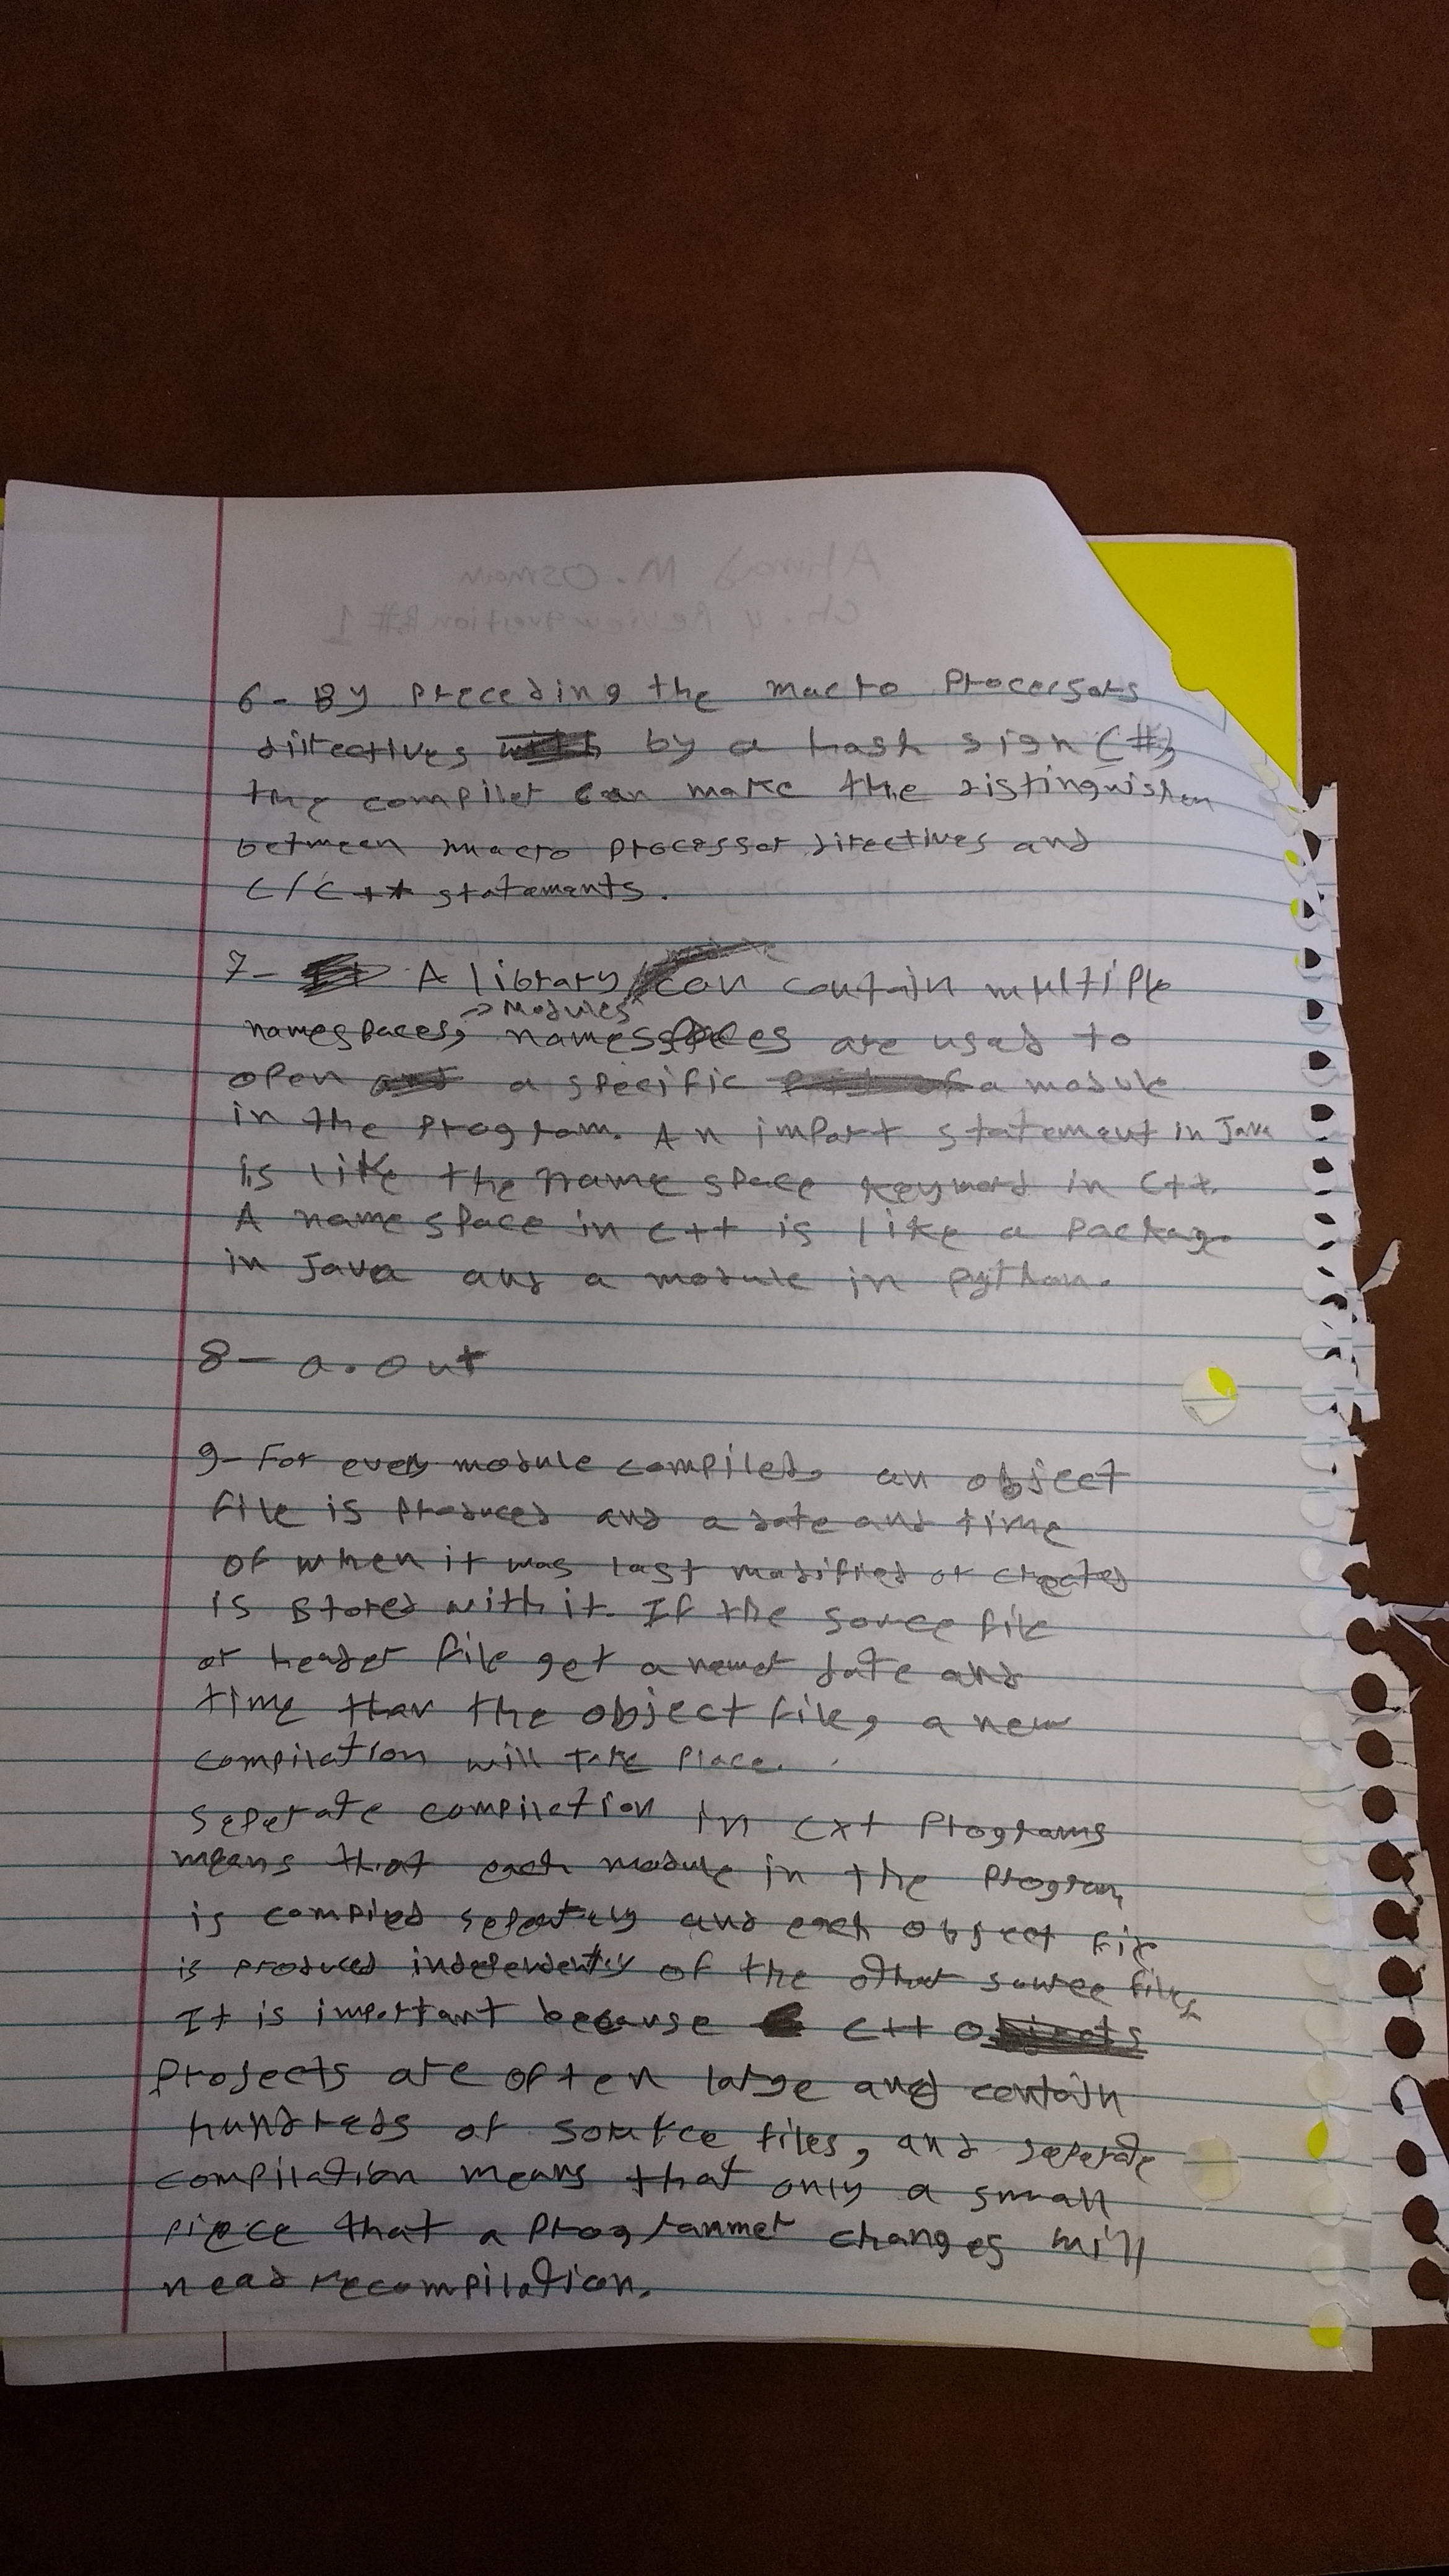 Ahmad M. Osman
Ch. 4 Review question R#1
6- By preceding the macro processors
directives by a hash sign (#)
the compiler can make the distinguishen
between macro processor directives and
C/C++ statements.
7- A library can contain multiple
-> Modules
namespaces, namespaces are used to
open a specific a module
in the program. An import statement in Java
is like the name space keyword in C++.
A name space in C++ is like a package
in Java and a module in python.
8- a.out
9- For every module compiled, an object
file is produced and a date and time
of when it was last modified or created
is stored with it. If the source file
or header file get a newer date and
time than the object file, a new
compilation will take place.
Seperate compilation in C++ Programs
means that each module in the program
is compiled seperately and each object file
is produced independently of the other source files
It is important because C++
Projects are often large and contain
hundreds of source files, and seperate
compilation means that only a small
piece that a programmer changes will
need recompilation.